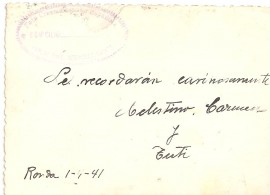 Se recordarán cariñosamente
Celestino, Carmen
y
Tuti
Ronda 1-1-41